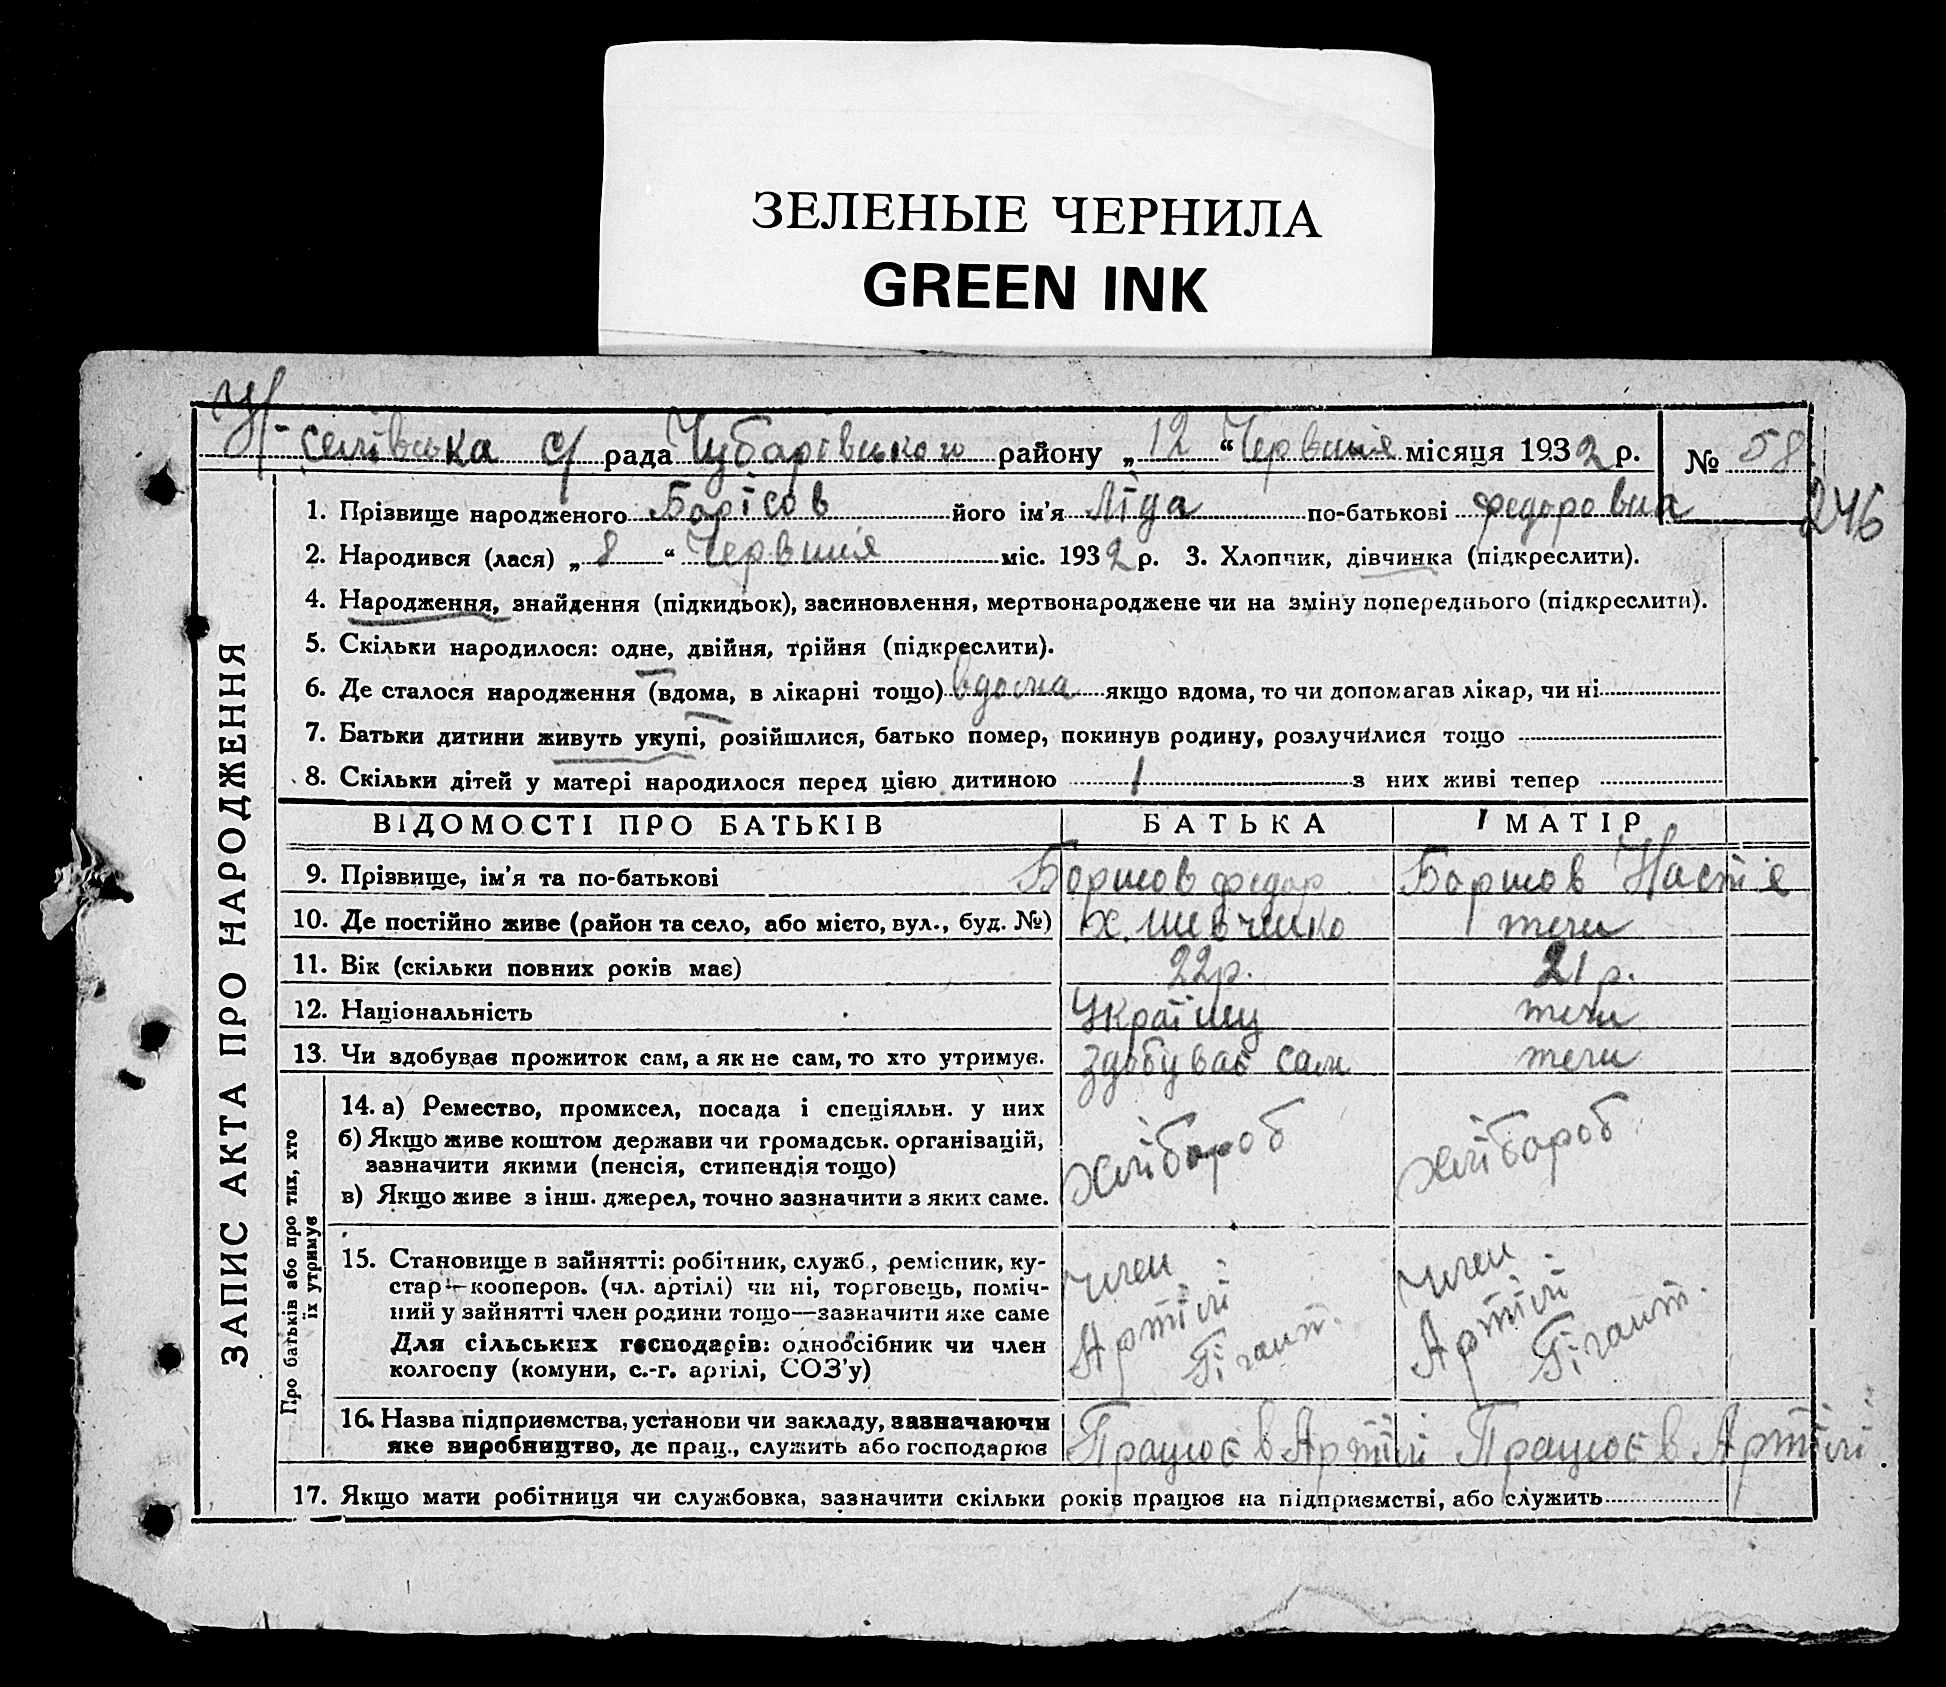 ЗЕЛЕНЫЕ ЧЕРНИЛА
GREEN INK
селівська с/ рада Чубарівського району „ 12 “ Червння місяця 1932 р. № 58
246
ЗАПИС АКТА ПРО НАРОДЖЕННЯ
1. Прізвище народженого Борісов його ім'я Ліда по-батькові федоровна
2. Народився (лася) „ 8 “ Червння міс. 1932 р. 3. Хлопчик, дівчинка (підкреслити).
4. Народження, знайдення (підкидьок), засиновлення, мертвонароджене чи на зміну попереднього (підкреслити).
5. Скільки народилося: одне, двійня, трійня (підкреслити).
6. Де сталося народження (вдома, в лікарні тощо) вдома якщо вдома, то чи допомагав лікар, чи ні
7. Батьки дитини живуть укупі, розійшлися, батько помер, покинув родину, розлучилися тощо
8. Скільки дітей у матері народилося перед цією дитиною 1 з них живі тепер
ВІДОМОСТІ ПРО БАТЬКІВ БАТЬКА МАТІР
9. Прізвище, ім'я та по-батькові Борисов федор Борисов Настя
10. Де постійно живе (район та село, або місто, вул., буд. №) х. Шевченко теж
11. Вік (скільки повних років має) 22 р. 21 р.
12. Національність Українц теж
13. Чи здобуває прожиток сам, а як не сам, то хто утримує. здобуває сам теж
Про батьків або про тих, хто
їх утримує
14. а) Ремество, промисел, посада і спеціяльн. у них
б) Якщо живе коштом держави чи громадськ. організацій,
зазначити якими (пенсія, стипендія тощо)
в) Якщо живе з інш. джерел, точно зазначити з яких саме.
хлібороб хлібороб
15. Становище в зайнятті: робітник, служб., ремісник, ку-
стар—кооперов. (чл. артілі) чи ні, торговець, поміч-
ний у зайнятті член родини тощо—зазначити яке саме
Для сільських господарів: одноосібник чи член
колгоспу (комуни, с.-г. артілі, СОЗ'у)
Член Артілі Гігант. Член Артілі Гігант.
16. Назва підприємства, установи чи закладу, зазначаючи
яке виробництво, де прац., служить або господарює
Працює в Артілі Працює в Артілі.
17. Якщо мати робітниця чи службовка, зазначити скільки років працює на підприємстві, або служить